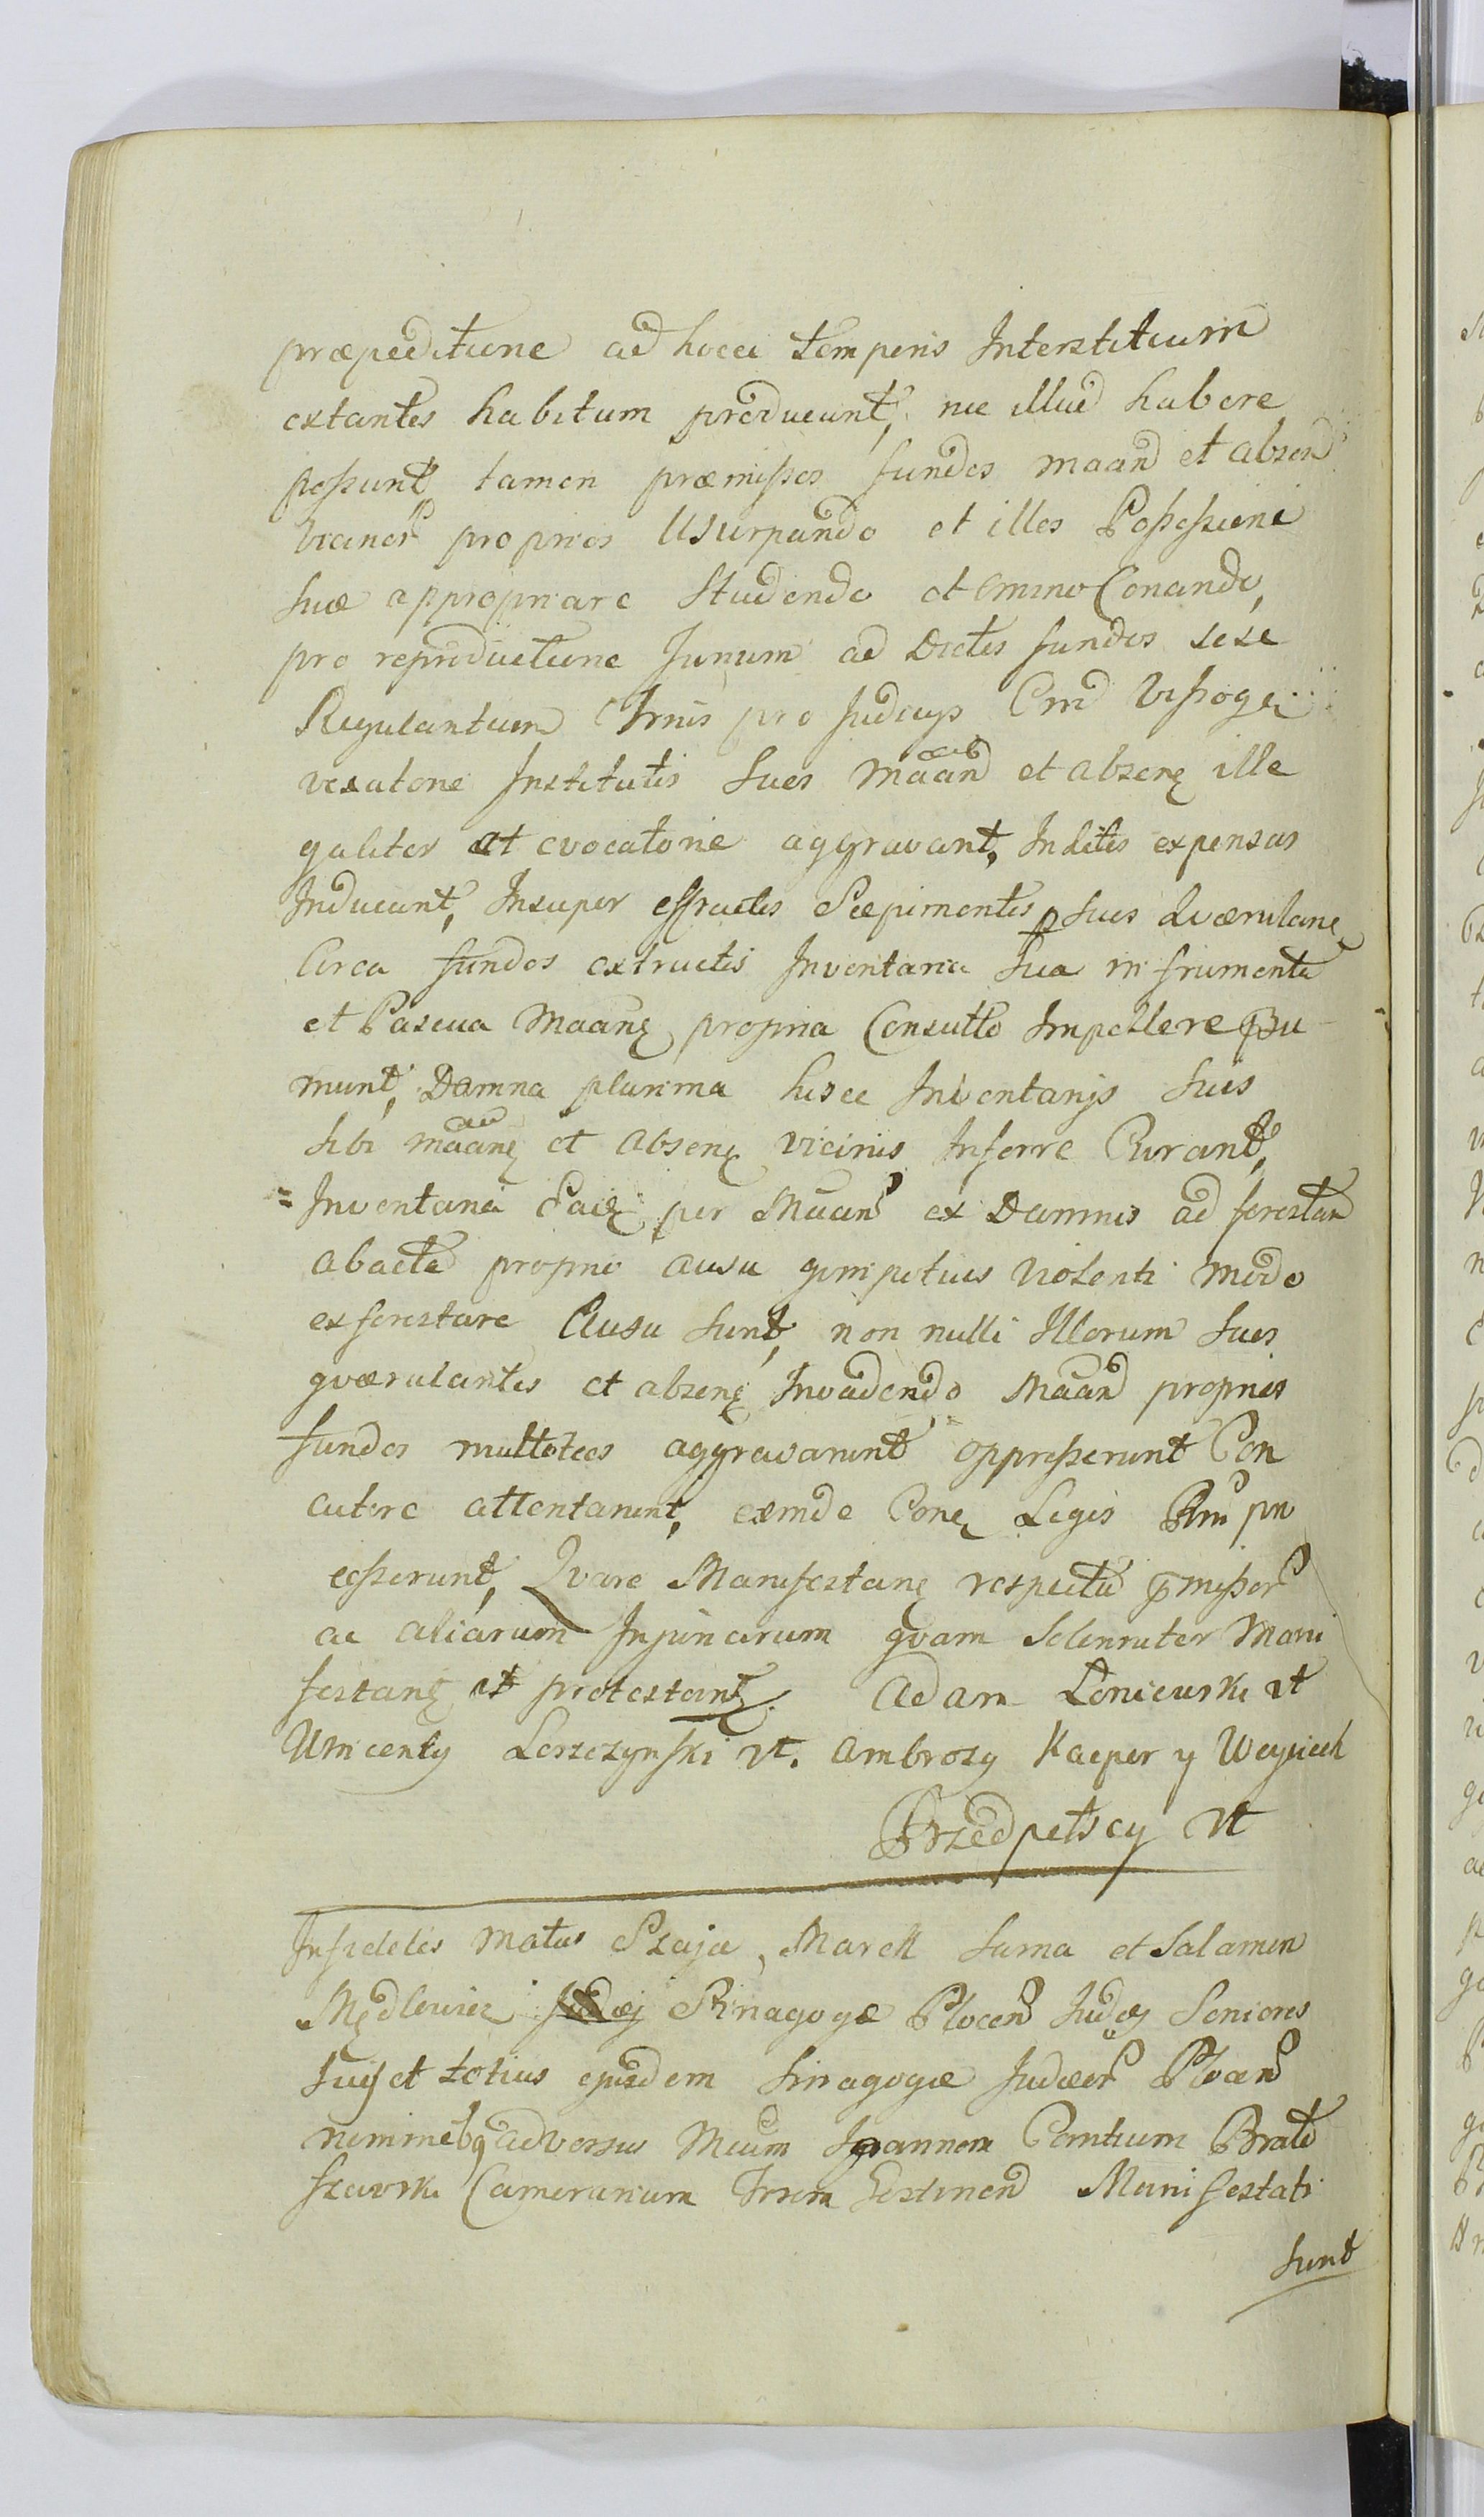 præpeditione ad hocce temporis Interstitium
extantes habitum producunt, nec illud habere
possunt tamen præmissos fundos maand et absen
vicinor proprios Usurpando et illos Possessioni
suæ appropriare Studendo et omnino Conando,
pro reproductione Jurium ad Dictos fundos sese
Regulantium Trnis pro Judicys Cmd Vissogr
vexatorie Institutis suos maand et absenę ille
galiter et evocatorie aggravant, In litis expensas
Inducunt, Insuper effractis Sæpimentis p suos Quærulanę
Circa fundos extructis Inventaria sua in frumenta
et Pascua Maanę propria Consulto Impellere psu
munt, Damna plurima hisce Inventarijs suis
sibi maanę et absenę vicinis Inferre Curant,
= Inventaria Eadę per Maan ex Damnis ad forestam
abacta proprio ausu qvinpotius violenti modo
exforestare Ausu sunt, non nulli Illorum suos
qværulantes et absenę Invadendo Maand proprios
fundos multoties aggravarunt oppresserunt Con
cutere attentarunt, exinde Conę Legis Pltm pro
cesserunt, Qvare Manifestanę respectu pmissor
ac aliarum Injuriarum qvam Solenniter Mani
festanę et protestantę. Adam Loniewski rt
Wincenty Leszczynski rt. Ambrozy Kacper y Woyciech
Przedpełscy rt
Infideles Matus Szaja, Marek Surna et Salamon
Mędlowicz Sinagogæ Plocen Judæj Seniores
suij et totius ejusdem Sinagogæ Judæor Plocen
nominebq adversus Mcum Joannem Contium Brato
szewski Camerarium Trrem Gostinen Manifestati
sunt